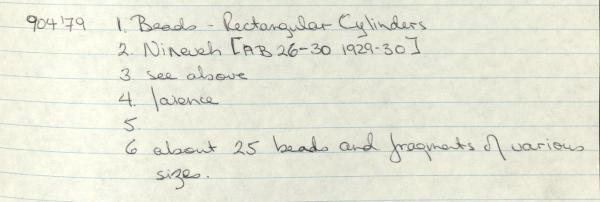 904'79 1. Beads - Rectangular Cylinders
2. Nineveh [AB 26-30 1929-30]
3 see above
4. faience
5.
6 about 25 beads and fragments of various
sizes.